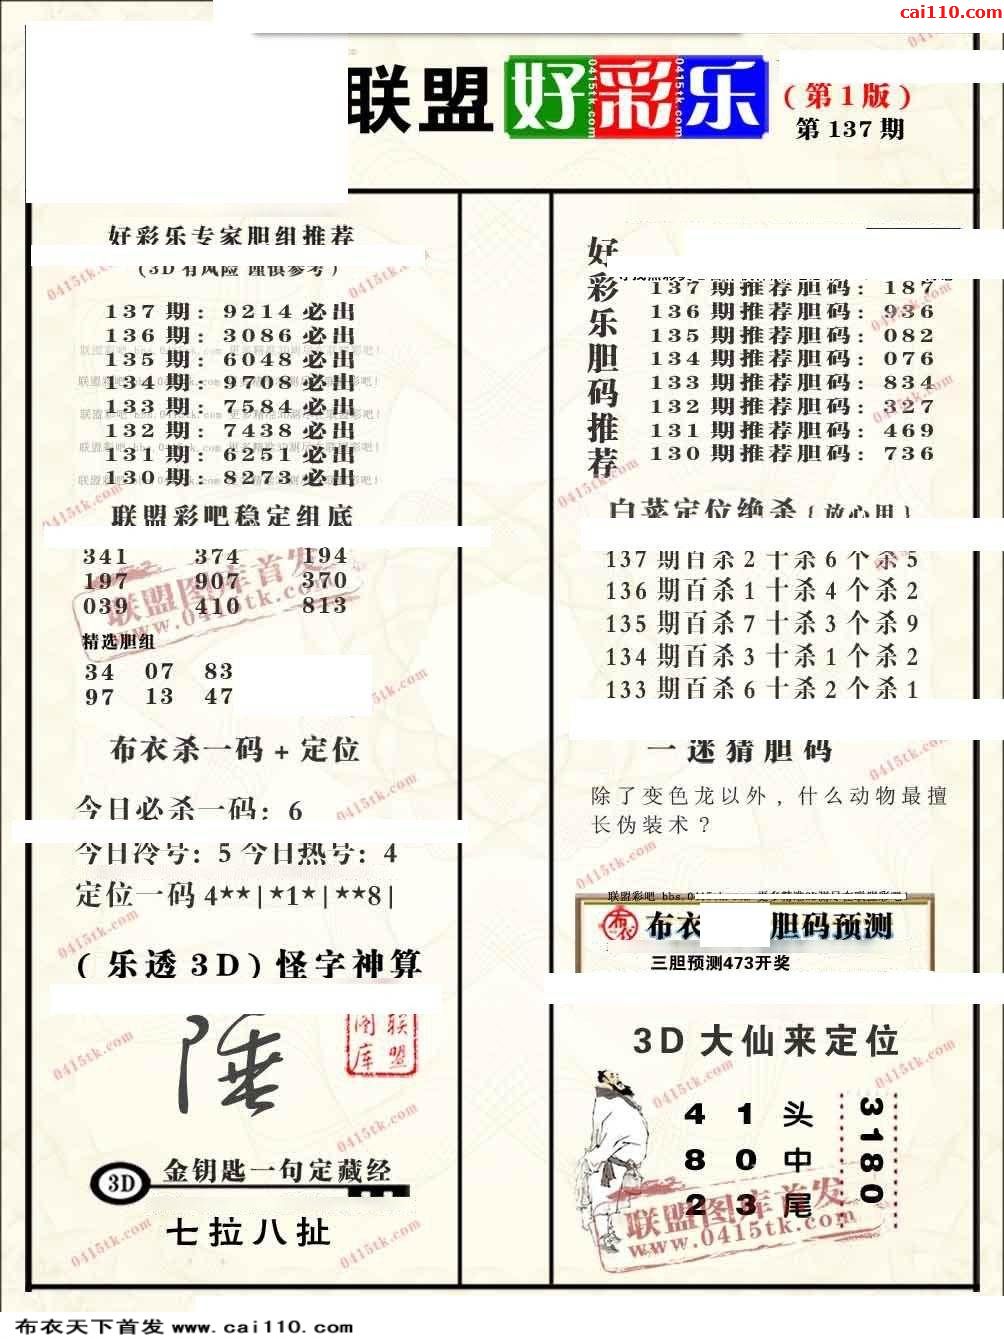 cai110.com
联盟 好彩乐
0415tk.com 0415tk.com
(第1版)
第 137 期
好彩乐专家胆组推荐
(3D 有风险 谨慎参考)
137 期: 9214 必出
136 期: 3086 必出
135 期: 6048 必出
134 期: 9708 必出
133 期: 7584 必出
132 期: 7438 必出
131 期: 6251 必出
130 期: 8273 必出
联盟彩吧稳定组底
341 374 194
197 907 370
039 410 813
联盟图库首发
www.0415tk.com
精选胆组
34 07 83
97 13 47
布衣杀一码 + 定位
今日必杀一码: 6
今日冷号: 5 今日热号: 4
定位一码 4**|*1*|**8|
(乐透 3D) 怪字神算
联盟图库
3D 金钥匙一句定藏经
七拉八扯
好彩乐胆码推荐
137 期推荐胆码: 187
136 期推荐胆码: 936
135 期推荐胆码: 082
134 期推荐胆码: 076
133 期推荐胆码: 834
132 期推荐胆码: 327
131 期推荐胆码: 469
130 期推荐胆码: 736
白菜定位绝杀 (放心用)
137 期百杀 2 十杀 6 个杀 5
136 期百杀 1 十杀 4 个杀 2
135 期百杀 7 十杀 3 个杀 9
134 期百杀 3 十杀 1 个杀 2
133 期百杀 6 十杀 2 个杀 1
一迷猜胆码
除了变色龙以外, 什么动物最擅
长伪装术?
布衣 布衣 胆码预测
三胆预测473开奖
3D 大仙来定位
4 1 头
8 0 中
2 3 尾
3180
联盟图库首发
www.0415tk.com
0415tk.com
布衣天下首发 www.cai110.com